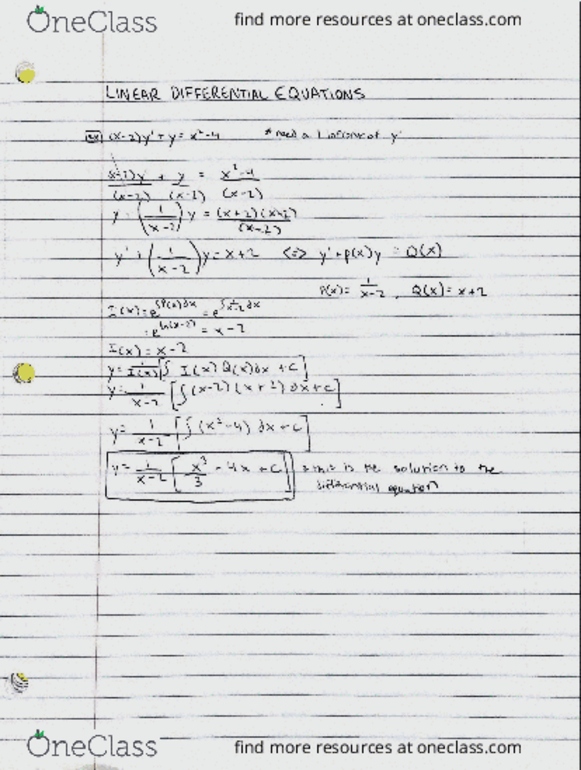 OneClass find more resources at oneclass.com
LINEAR DIFFERENTIAL EQUATIONS
Ex (x-2)y' + y = x²-4 * need a 1 in front of y'
(x-2)y'/(x-2) + y/(x-2) = x²-4/(x-2)
y' (1/x-2)y = (x+2)(x-2)/(x-2)
y' + (1/x-2)y = x+2 <=> y'+p(x)y = Q(x)
P(x) = 1/x-2, Q(x) = x+2
I(x) = e^∫P(x)dx = e^∫1/x-2 dx
= e^ln(x-2) = x-2
I(x) = x-2
y = 1/I(x) [∫ I(x) Q(x) dx + C]
y = 1/x-2 [∫ (x-2)(x+2) dx + C]
y = 1/x-2 [∫ (x²-4) dx + C]
y = 1/x-2 [x³/3 - 4x + C] this is the solution to the
differential equation
OneClass find more resources at oneclass.com